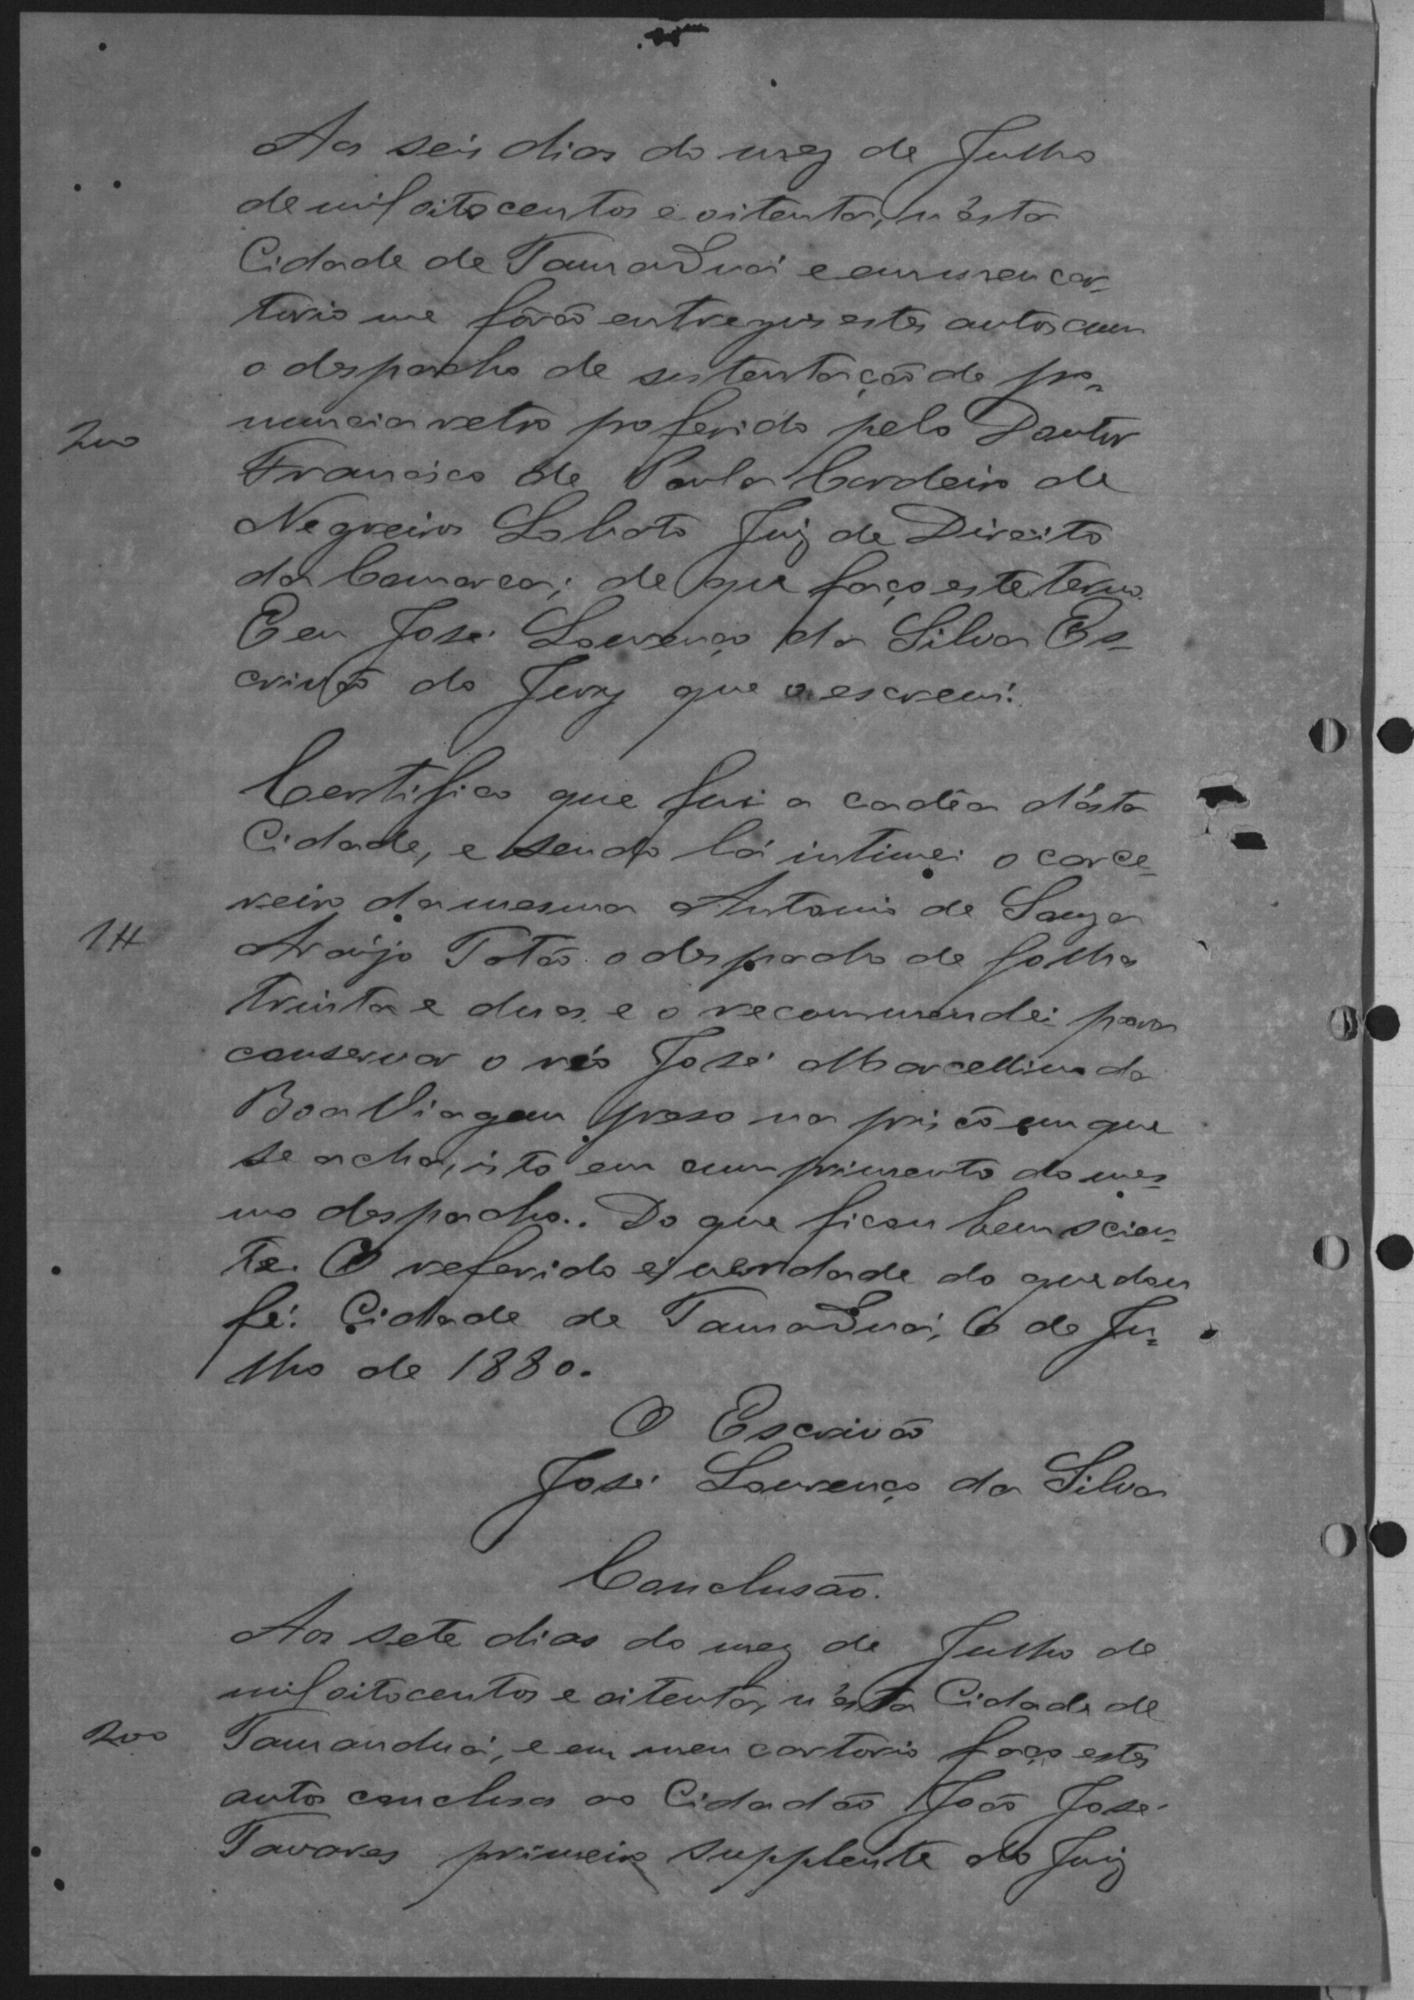 Aos seis dias do mez de Julho
de mil oitocentos e oitenta, n'ésta
Cidade de Tamanduá e em meu car-
torio me fôrão entregues estes autos com
o despacho de sustentação de pro-
200
nuncia retro proferido pelo Doutor
Francisco de Paula Cordeiro de
Negreiros Lobato Juiz de Direito
da Comarca; de que faço este termo.
E eu José Lourenço da Silva Es-
crivão do Jury que o escrevi.
Certifico que fui a cadêa d'ésta
Cidade, e sendo lá intimei o carce-
reiro da mesma Antonio de Souza
1#
Araújo Totão o despacho de folhas
trinta e duas e o recommendei para
conservar o réo José Marcellino da
Boa Viagem preso na prisão em que
se acha, isto em cumprimento do mes-
mo despacho. Do que ficou bem scien-
te. O referido é verdade do que dou
fé. Cidade de Tamanduá, 6 de Ju-
lho de 1880.
O Escrivão
José Lourenço da Silva
Conclusão.
Aos sete dias do mez de Julho de
mil oitocentos e oitenta, n'ésta Cidade de
200
Tamanduá, e em meu cartorio faço estes
autos conclusos ao Cidadão João José
Tavares primeiro supplente do Juiz